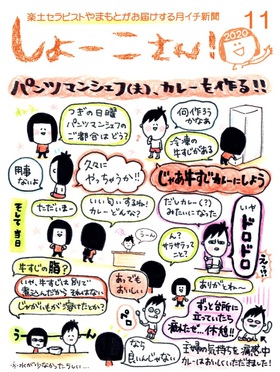 楽土セラピストやまもとがお届けする月イチ新聞
しょーこさん!
2020
11
パンツマンシェフ(夫)、カレーを作る!!
つぎの日曜
パンツマンシェフの
ご都合はどう?
用事
ないよ
久々に
やっちゃうか!!
何作ろう
かなぁ
冷凍の
牛すじがある
じゃあ牛すじカレーにしよう
そして当日
ただいまー
いい匂いするね!
カレーどんな?
うーん
だしカレー(?)
みたいになった
ん?
サラサラって
こと?
いや
ドロドロ
えっ!?
牛すじの脂?
いや、牛すじは別で
煮込んだから それはない
じゃがいもが溶けたとか?
あ、でも
おいしい
ありがとー
ずっと台所に
立っていたら
痛はせ…休憩!!
うーん
なら
良いんじゃない
主婦の気持ちを痛感中
カレーはおいしくいただきました。